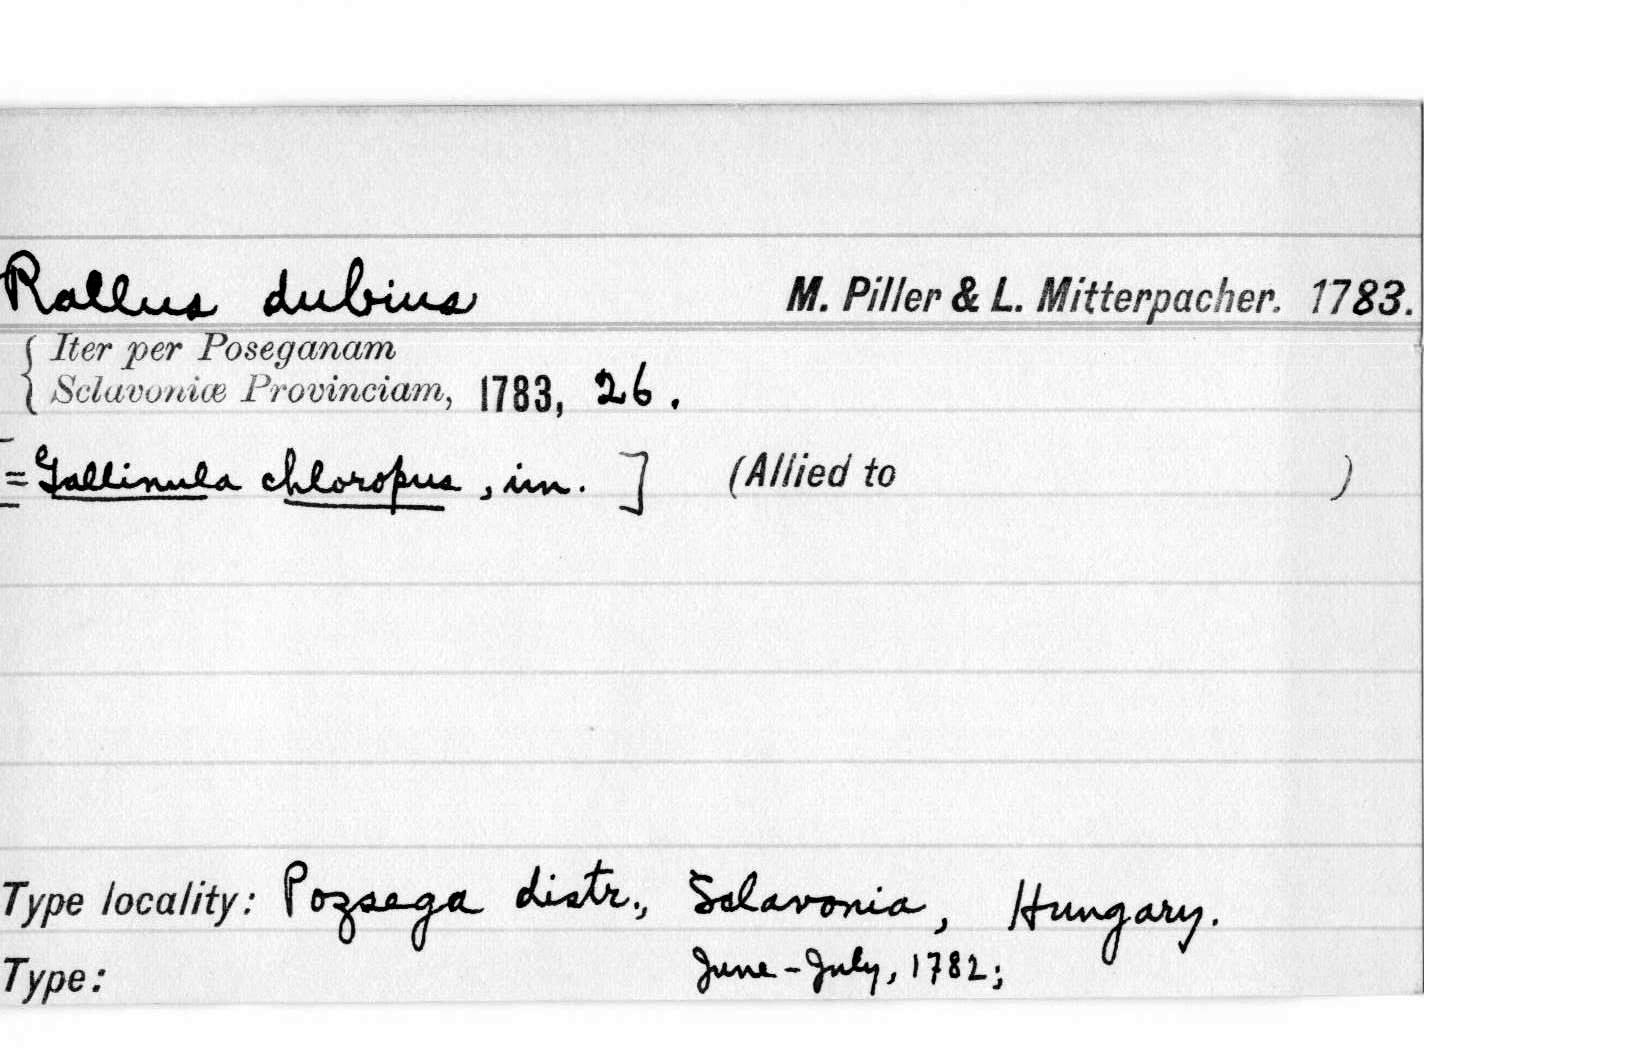 Rallus dubius M. Piller & L. Mitterpacher. 1783.
{ Iter per Poseganam
Sclavoniæ Provinciam, 1783, 26.
[=Gallinula chloropus, im.] (Allied to )
Type locality: Pozsega distr., Sclavonia, Hungary.
Type: June-July, 1782;